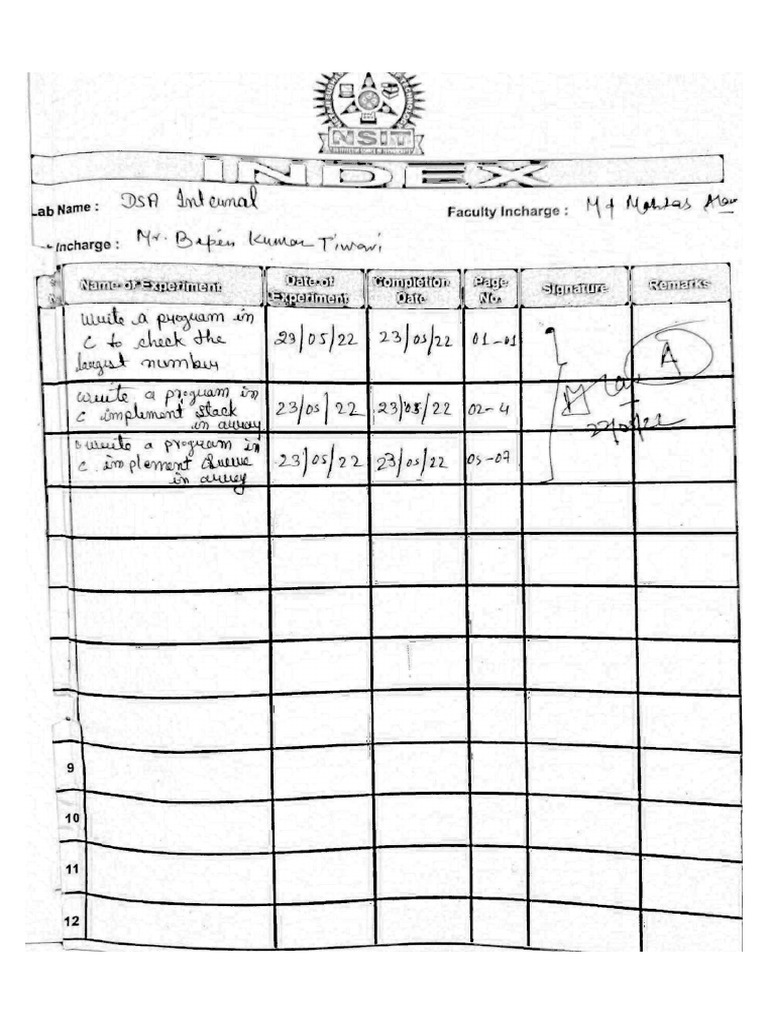 NSIT
INDEX
Lab Name : DSA Internal Faculty Incharge : Md Mahtas Alam
Incharge : Mr. Bepin Kumar Tiwari
Name of Experiment Date of Experiment Completion Date Page No. Signature Remarks
Write a program in
C to check the
largest number 23/05/22 23/05/22 01-01
A
Write a program in
C implement Stack
in array 23/05/22 23/05/22 02-4
Write a program in
C implement Queue
in array 23/05/22 23/05/22 05-07
9
10
11
12